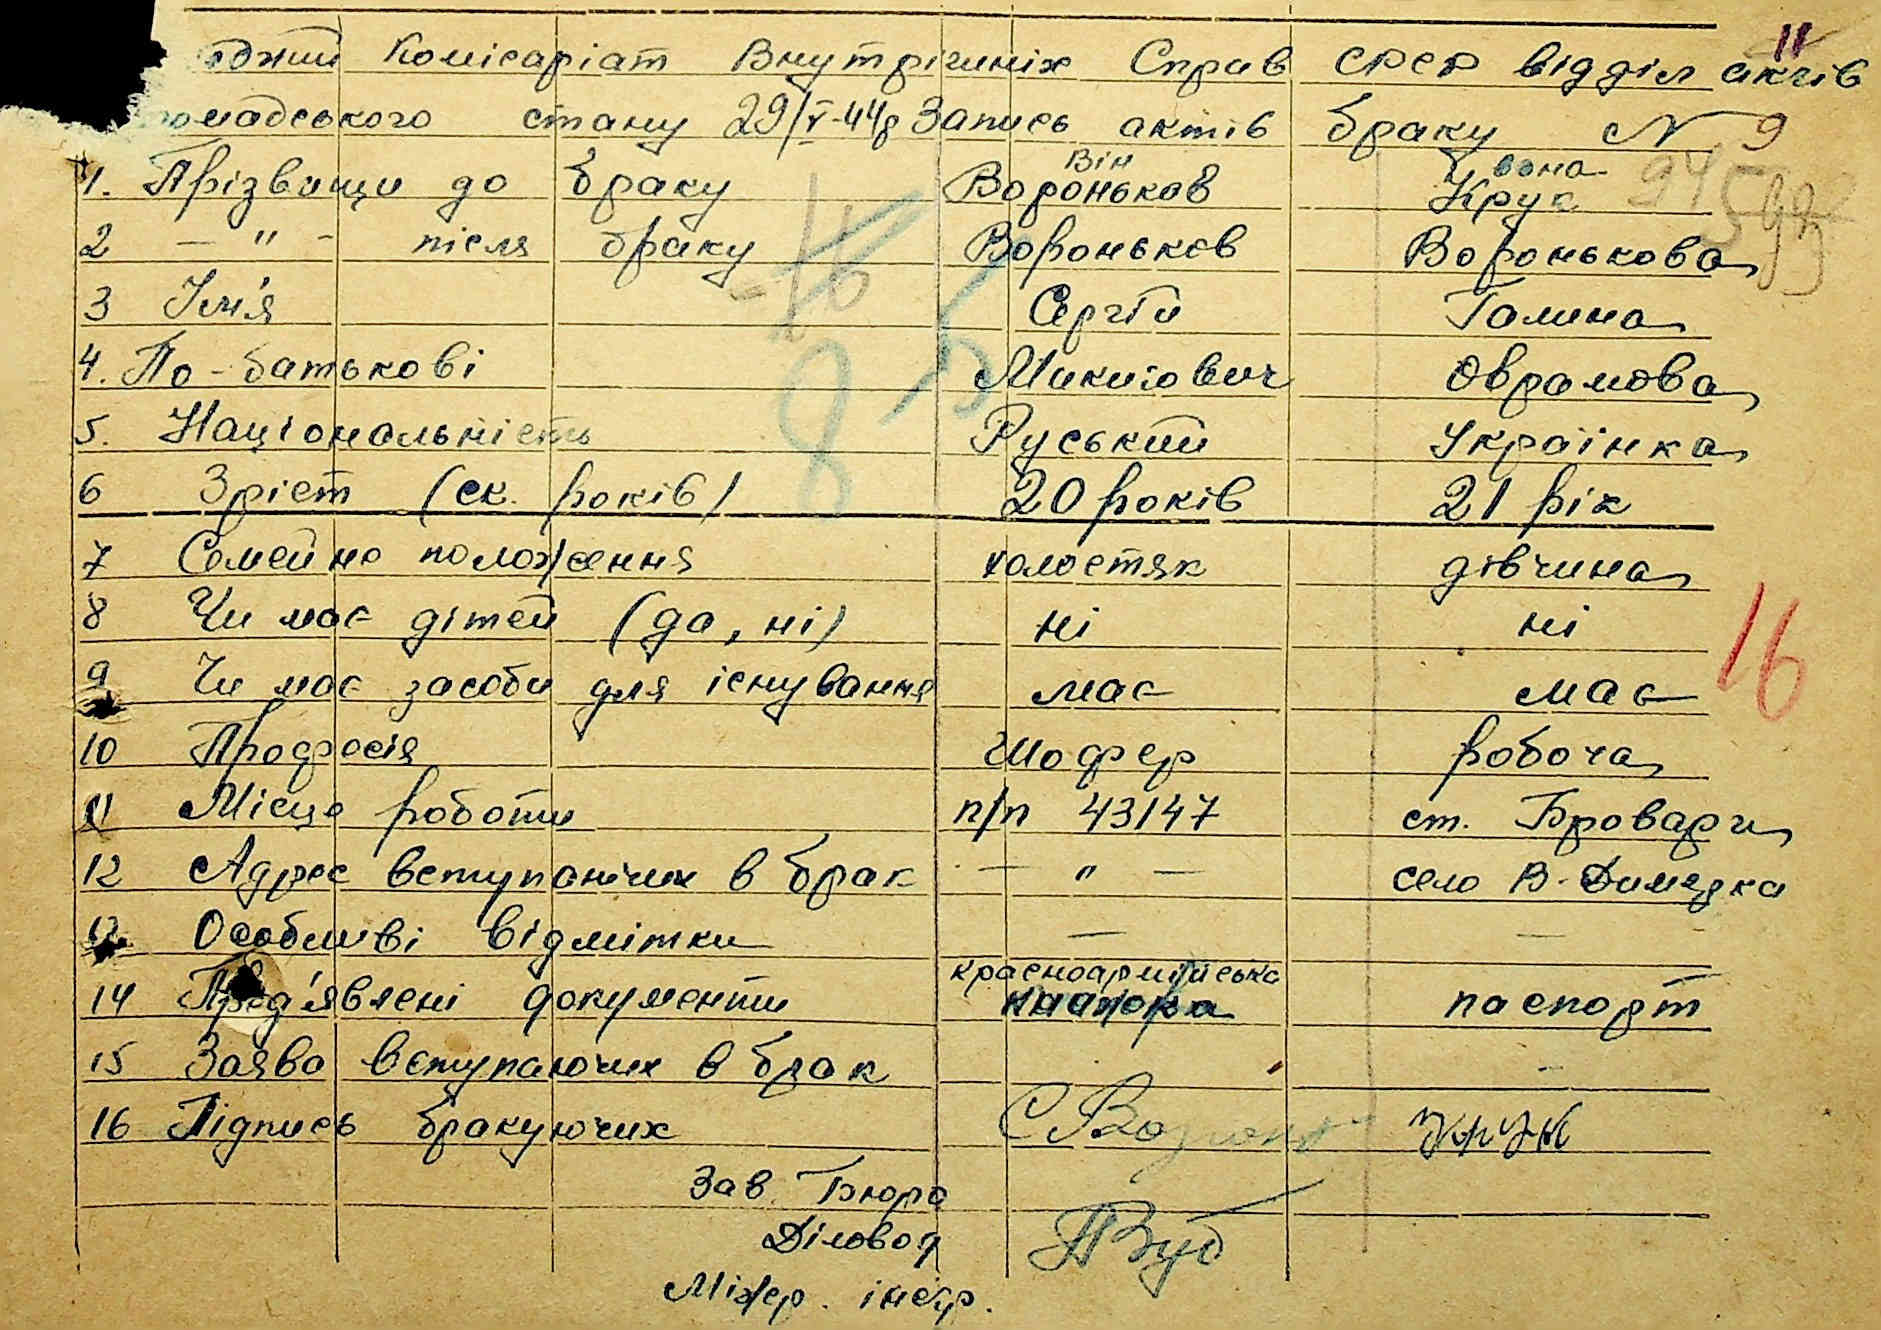 11
Комісаріат Внутрішніх Справ СРСР відділ актів
громадського стану 29/V-44р Запись актів браку N 9
Він вона
1. Прізвище до браку Вороньков Крук
2 — " — після браку Вороньков Воронькова
3 Ім'я Сергій Галина
4. По-батькові Микитович Оврамова
5. Національність Руський Українка
6 Зріст (ск. років) 20 років 21 рік
7 Семейне положення холостяк дівчина
8 Чи має дітей (да, ні) ні ні
9 Чи має засоби для існування має має
16
10 Професія Шофер робоча
11 Місце роботи п/п 43147 ст. Бровари
12 Адрес вступаючих в брак — " — село В-Димерка
13 Особливі відмітки — —
14 Пред'явлені документи красноармійська книжка паспорт
15 Заява вступаючих в брак
16 Підпись бракуючих С Ворон Крук
Зав. Бюра
Діловод
Міжр. інсп.